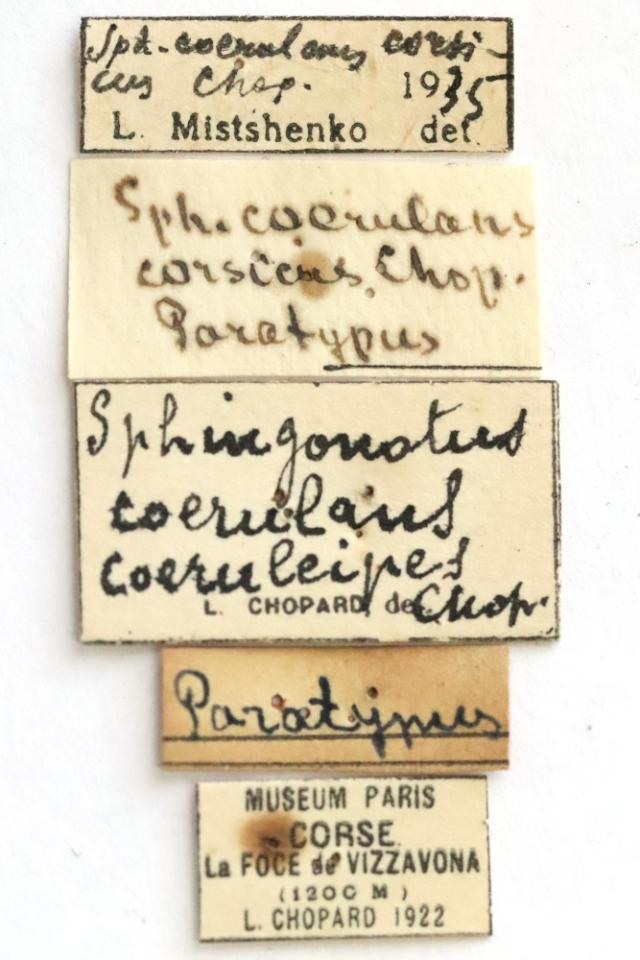 Sph. coerulans corsi-
cus Chop. 1935
L. Mistshenko det.
Sph. coerulans
corsicus Chop.
Paratypus
Sphingonotus
coerulans
coeruleipes
L. CHOPARD det Chop.
Paratypus
MUSEUM PARIS
CORSE
La FOCE de VIZZAVONA
(1200 M)
L. CHOPARD 1922